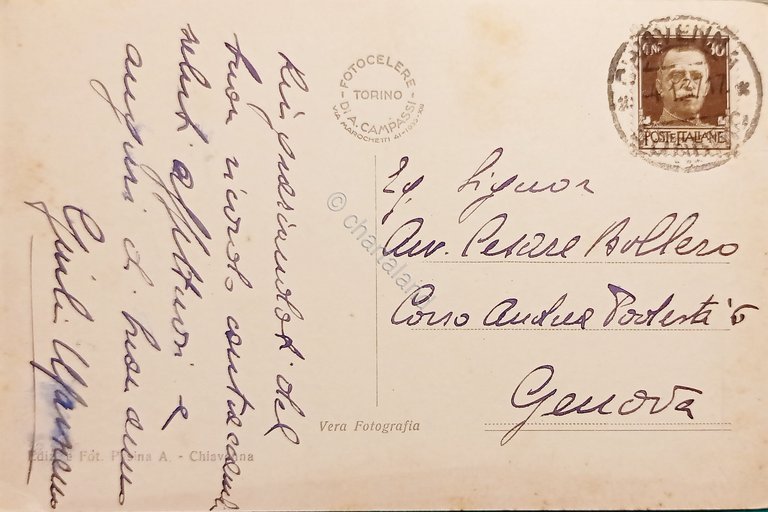 Ringraziandoti del
tuo ricordo contraccambio
saluti affettuosi e
auguri di buon anno
Giulio
FOTOCELERE
TORINO
DI A. CAMPASSI
VIA MAROCHETTI 41
POSTE ITALIANE
Eg. Signor
Avv. Cesare Bollero
Corso Andrea Podestà 6
Genova
Vera Fotografia
Fot. A. - Chiavenna
© chartaland